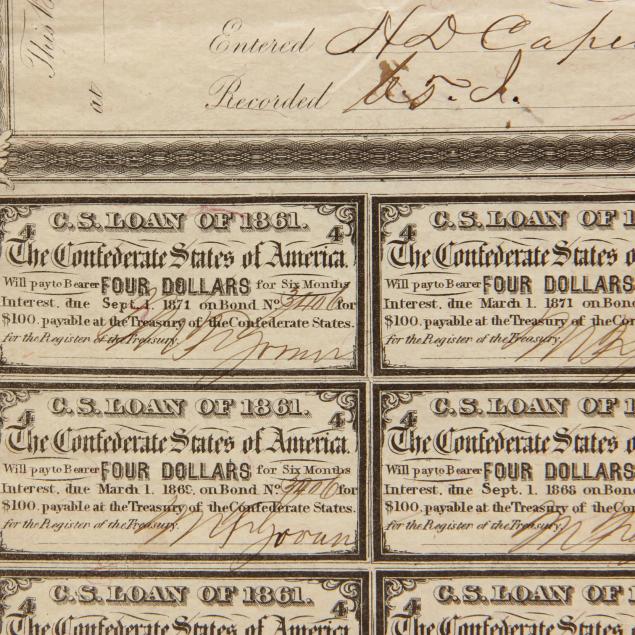 This
at
Entered H D Cape
Recorded
C.S. LOAN OF 1861.
4 4
The Confederate States of America.
Will pay to Bearer FOUR DOLLARS for Six Months
Interest, due Sept. 1. 1871 on Bond No. 3406 for
$100, payable at the Treasury of the Confederate States.
for the Register of the Treasury.
C.S. LOAN OF 1
4
The Confederate States o
Will pay to Bearer FOUR DOLLARS
Interest, due March 1. 1871 on Bond
$100, payable at the Treasury of the Con
for the Register of the Treasury.
C.S. LOAN OF 1861.
4 4
The Confederate States of America.
Will pay to Bearer FOUR DOLLARS for Six Months
Interest, due March 1. 1869, on Bond No. 3406 for
$100, payable at the Treasury of the Confederate States.
for the Register of the Treasury.
C.S. LOAN OF 1
4
The Confederate States o
Will pay to Bearer FOUR DOLLARS
Interest, due Sept. 1. 1868 on Bond
$100, payable at the Treasury of the Con
for the Register of the Treasury.
C.S. LOAN OF 1861.
4 4
The Confederate States of America.
C.S. LOAN OF 1
4
The Confederate States o